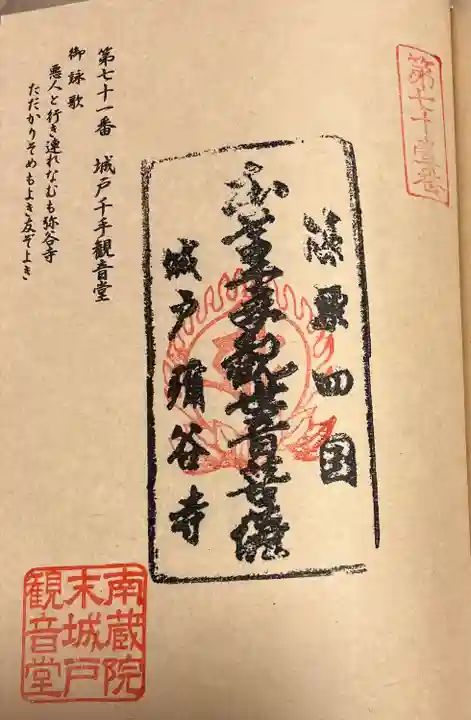 第七十壹番
篠栗四国
本尊千手観世音菩薩
城戸彌谷寺
第七十一番　城戸千手観音堂
御詠歌
悪人と行き連れなむも弥谷寺
ただかりそめもよき友ぞよき
南蔵院
末城戸
観音堂